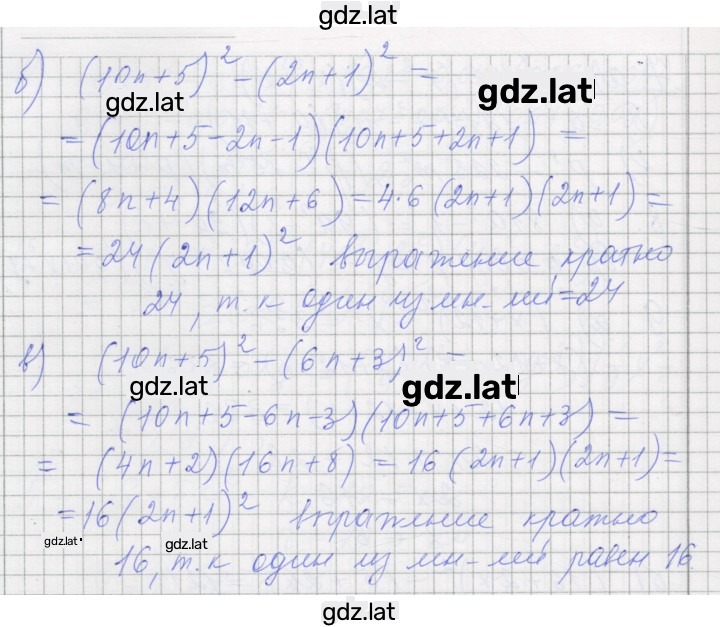 gdz.lat
б) (10n+5)² - (2n+1)² =
gdz.lat
gdz.lat
= (10n+5-2n-1)(10n+5+2n+1) =
= (8n+4)(12n+6) = 4·6(2n+1)(2n+1) =
= 24(2n+1)² выражение кратно
24, т.к один из мн-лий=24
в) (10n+5)² - (6n+3)² =
gdz.lat
gdz.lat
= (10n+5-6n-3)(10n+5+6n+3) =
= (4n+2)(16n+8) = 16(2n+1)(2n+1) =
= 16(2n+1)² выражение кратно
gdz.lat
gdz.lat
16, т.к один из мн-лей равен 16
gdz.lat